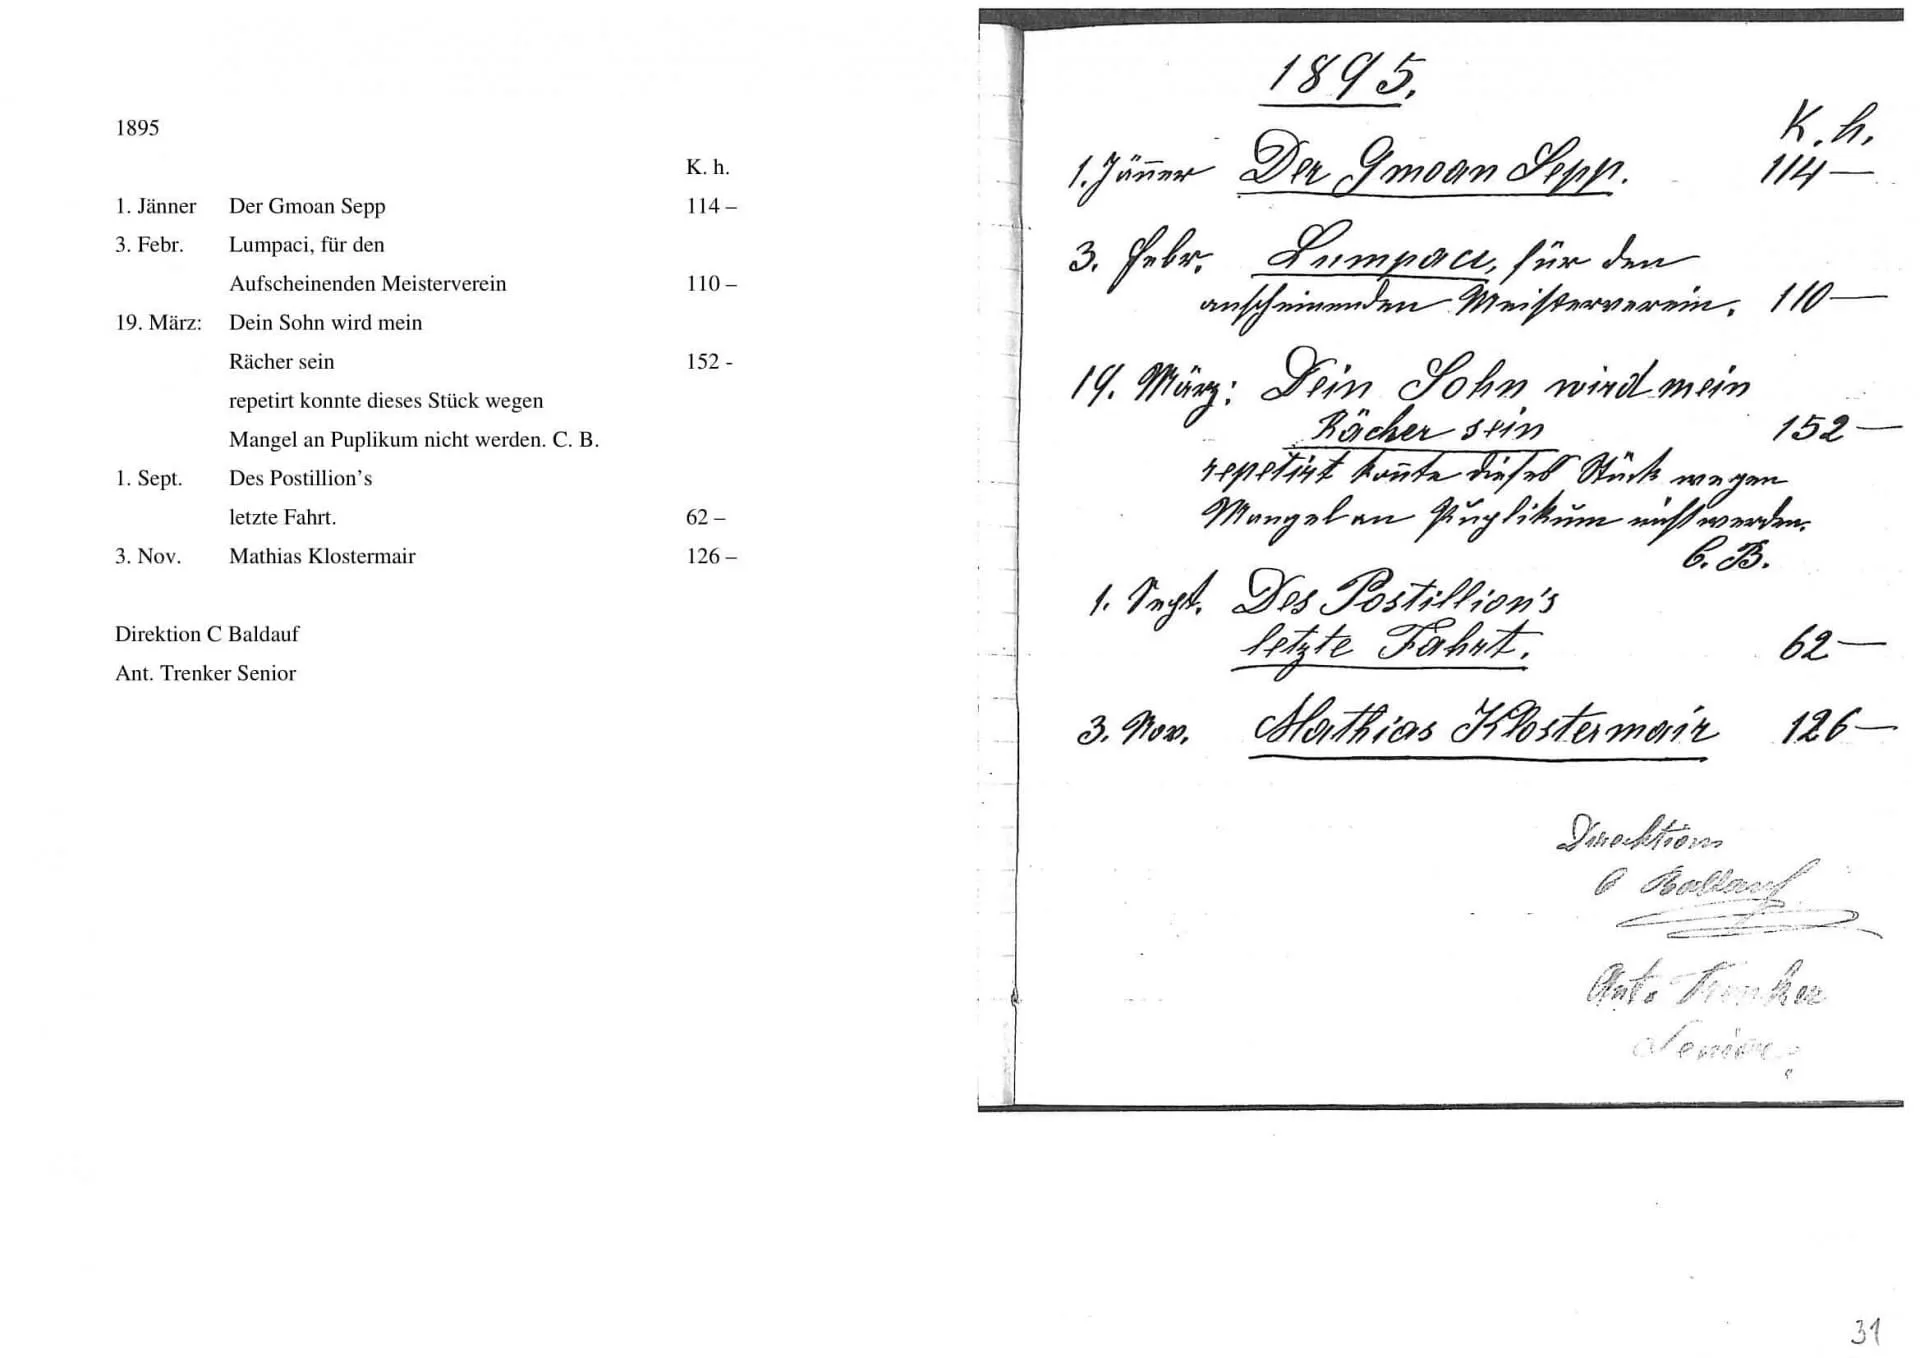 1895
K. h.
1. Jänner Der Gmoan Sepp 114 –
3. Febr. Lumpaci, für den
Aufscheinenden Meisterverein 110 –
19. März: Dein Sohn wird mein
Rächer sein 152 -
repetirt konnte dieses Stück wegen
Mangel an Puplikum nicht werden. C. B.
1. Sept. Des Postillion's
letzte Fahrt. 62 –
3. Nov. Mathias Klostermair 126 –
Direktion C Baldauf
Ant. Trenker Senior
1895.
K. h.
1. Jänner Der Gmoan Sepp. 114 —
3. Febr. Lumpaci, für den
anscheinenden Meisterverein. 110 —
19. März: Dein Sohn wird mein
Rächer sein 152 —
repetirt kon̄te dieses Stück wegen
Mangel an Puplikum nicht werden.
C. B.
1. Sept. Des Postillion's
letzte Fahrt. 62 —
3. Nov. Mathias Klostermair 126 —
Direktion
C Baldauf
Ant. Trenker
Senior
31